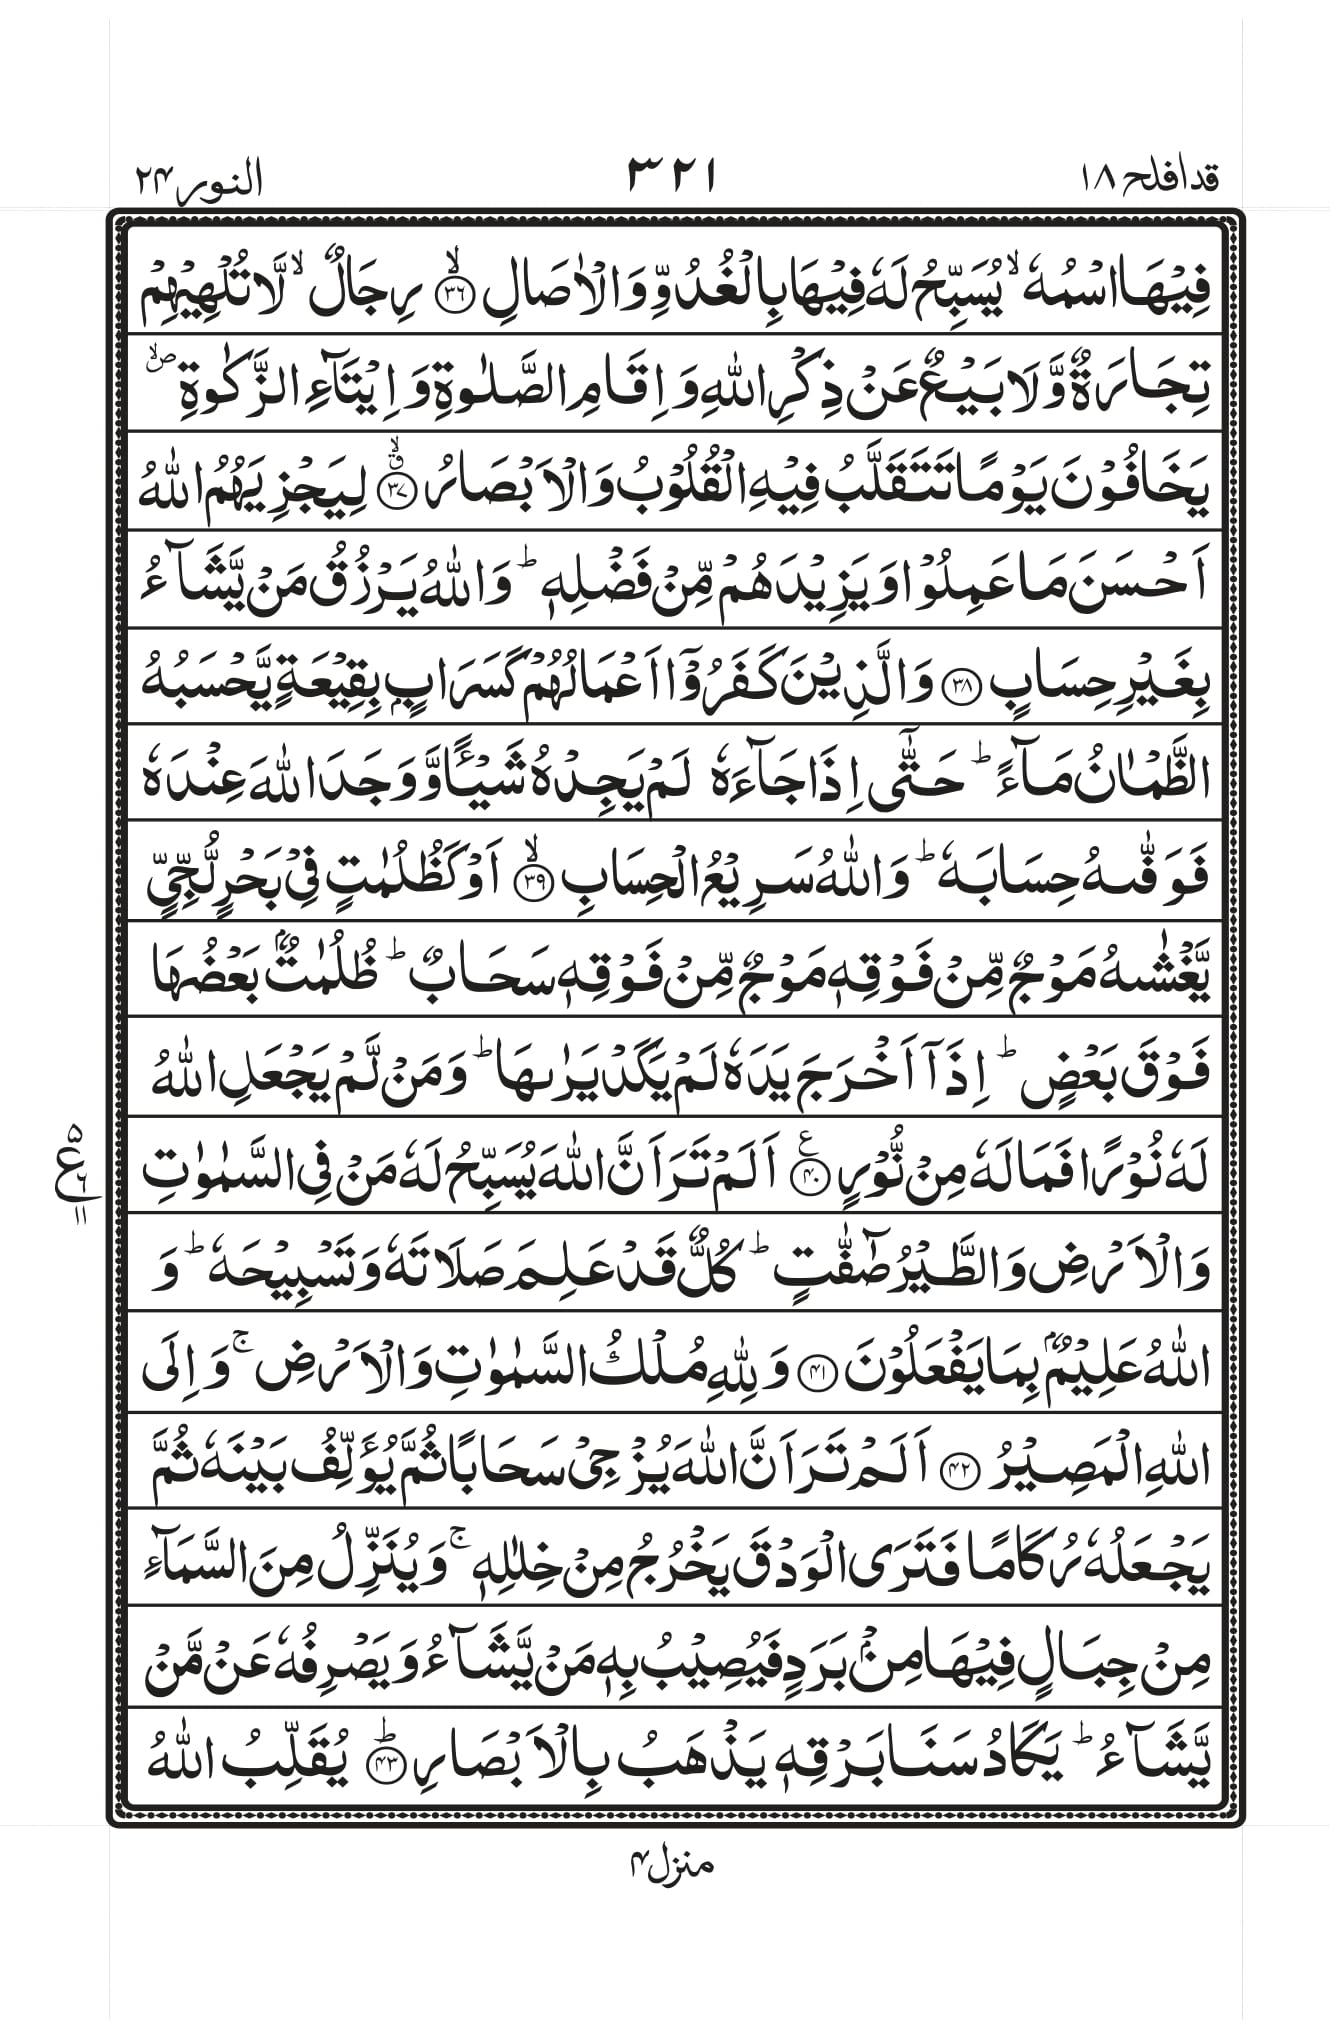 قدافلح ۱۸
۳۲۱
النور ۲۴
فِيۡهَا اسۡمُهٗ ۙ يُسَبِّحُ لَهٗ فِيۡهَا بِالۡغُدُوِّ وَالۡاٰصَالِ ۙ﴿۳۶﴾ رِجَالٌ ۙ لَّا تُلۡهِيۡهِمۡ
تِجَارَةٌ وَّلَا بَيۡعٌ عَنۡ ذِكۡرِ اللّٰهِ وَ اِقَامِ الصَّلٰوةِ وَ اِيۡتَآءِ الزَّكٰوةِ ۙ ۪
يَخَافُوۡنَ يَوۡمًا تَتَقَلَّبُ فِيۡهِ الۡقُلُوۡبُ وَالۡاَبۡصَارُ ۙ ق ﴿۳۷﴾ لِيَجۡزِيَهُمُ اللّٰهُ
اَحۡسَنَ مَا عَمِلُوۡا وَ يَزِيۡدَهُمۡ مِّنۡ فَضۡلِهٖ ؕ وَ اللّٰهُ يَرۡزُقُ مَنۡ يَّشَآءُ
بِغَيۡرِ حِسَابٍ ﴿۳۸﴾ وَ الَّذِيۡنَ كَفَرُوۡۤا اَعۡمَالُهُمۡ كَسَرَابٍۭ بِقِيۡعَةٍ يَّحۡسَبُهُ
الظَّمۡاٰنُ مَآءً ؕ حَتّٰۤى اِذَا جَآءَهٗ لَمۡ يَجِدۡهُ شَيۡـًٔـا وَّ وَجَدَ اللّٰهَ عِنۡدَهٗ
فَوَفّٰٮهُ حِسَابَهٗ ؕ وَ اللّٰهُ سَرِيۡعُ الۡحِسَابِ ۙ﴿۳۹﴾ اَوۡ كَظُلُمٰتٍ فِىۡ بَحۡرٍ لُّجِّىٍّ
يَّغۡشٰٮهُ مَوۡجٌ مِّنۡ فَوۡقِهٖ مَوۡجٌ مِّنۡ فَوۡقِهٖ سَحَابٌ ؕ ظُلُمٰتٌۢ بَعۡضُهَا
فَوۡقَ بَعۡضٍ ؕ اِذَاۤ اَخۡرَجَ يَدَهٗ لَمۡ يَكَدۡ يَرٰٮهَا ؕ وَمَنۡ لَّمۡ يَجۡعَلِ اللّٰهُ
لَهٗ نُوۡرًا فَمَا لَهٗ مِنۡ نُّوۡرٍ ﴿۴۰﴾ ع اَلَمۡ تَرَ اَنَّ اللّٰهَ يُسَبِّحُ لَهٗ مَنۡ فِى السَّمٰوٰتِ
۵ ع ۶ ۱۱
وَالۡاَرۡضِ وَالطَّيۡرُ صٰٓفّٰتٍ ؕ كُلٌّ قَدۡ عَلِمَ صَلَاتَهٗ وَتَسۡبِيۡحَهٗ ؕ وَ
اللّٰهُ عَلِيۡمٌۢ بِمَا يَفۡعَلُوۡنَ ﴿۴۱﴾ وَ لِلّٰهِ مُلۡكُ السَّمٰوٰتِ وَالۡاَرۡضِ ۚ وَ اِلَى
اللّٰهِ الۡمَصِيۡرُ ﴿۴۲﴾ اَلَمۡ تَرَ اَنَّ اللّٰهَ يُزۡجِىۡ سَحَابًا ثُمَّ يُؤَلِّفُ بَيۡنَهٗ ثُمَّ
يَجۡعَلُهٗ رُكَامًا فَتَرَى الۡوَدۡقَ يَخۡرُجُ مِنۡ خِلٰلِهٖ ۚ وَ يُنَزِّلُ مِنَ السَّمَآءِ
مِنۡ جِبَالٍ فِيۡهَا مِنۡۢ بَرَدٍ فَيُصِيۡبُ بِهٖ مَنۡ يَّشَآءُ وَ يَصۡرِفُهٗ عَنۡ مَّنۡ
يَّشَآءُ ؕ يَكَادُ سَنَا بَرۡقِهٖ يَذۡهَبُ بِالۡاَبۡصَارِ ؕ﴿۴۳﴾ يُقَلِّبُ اللّٰهُ
منزل ۴